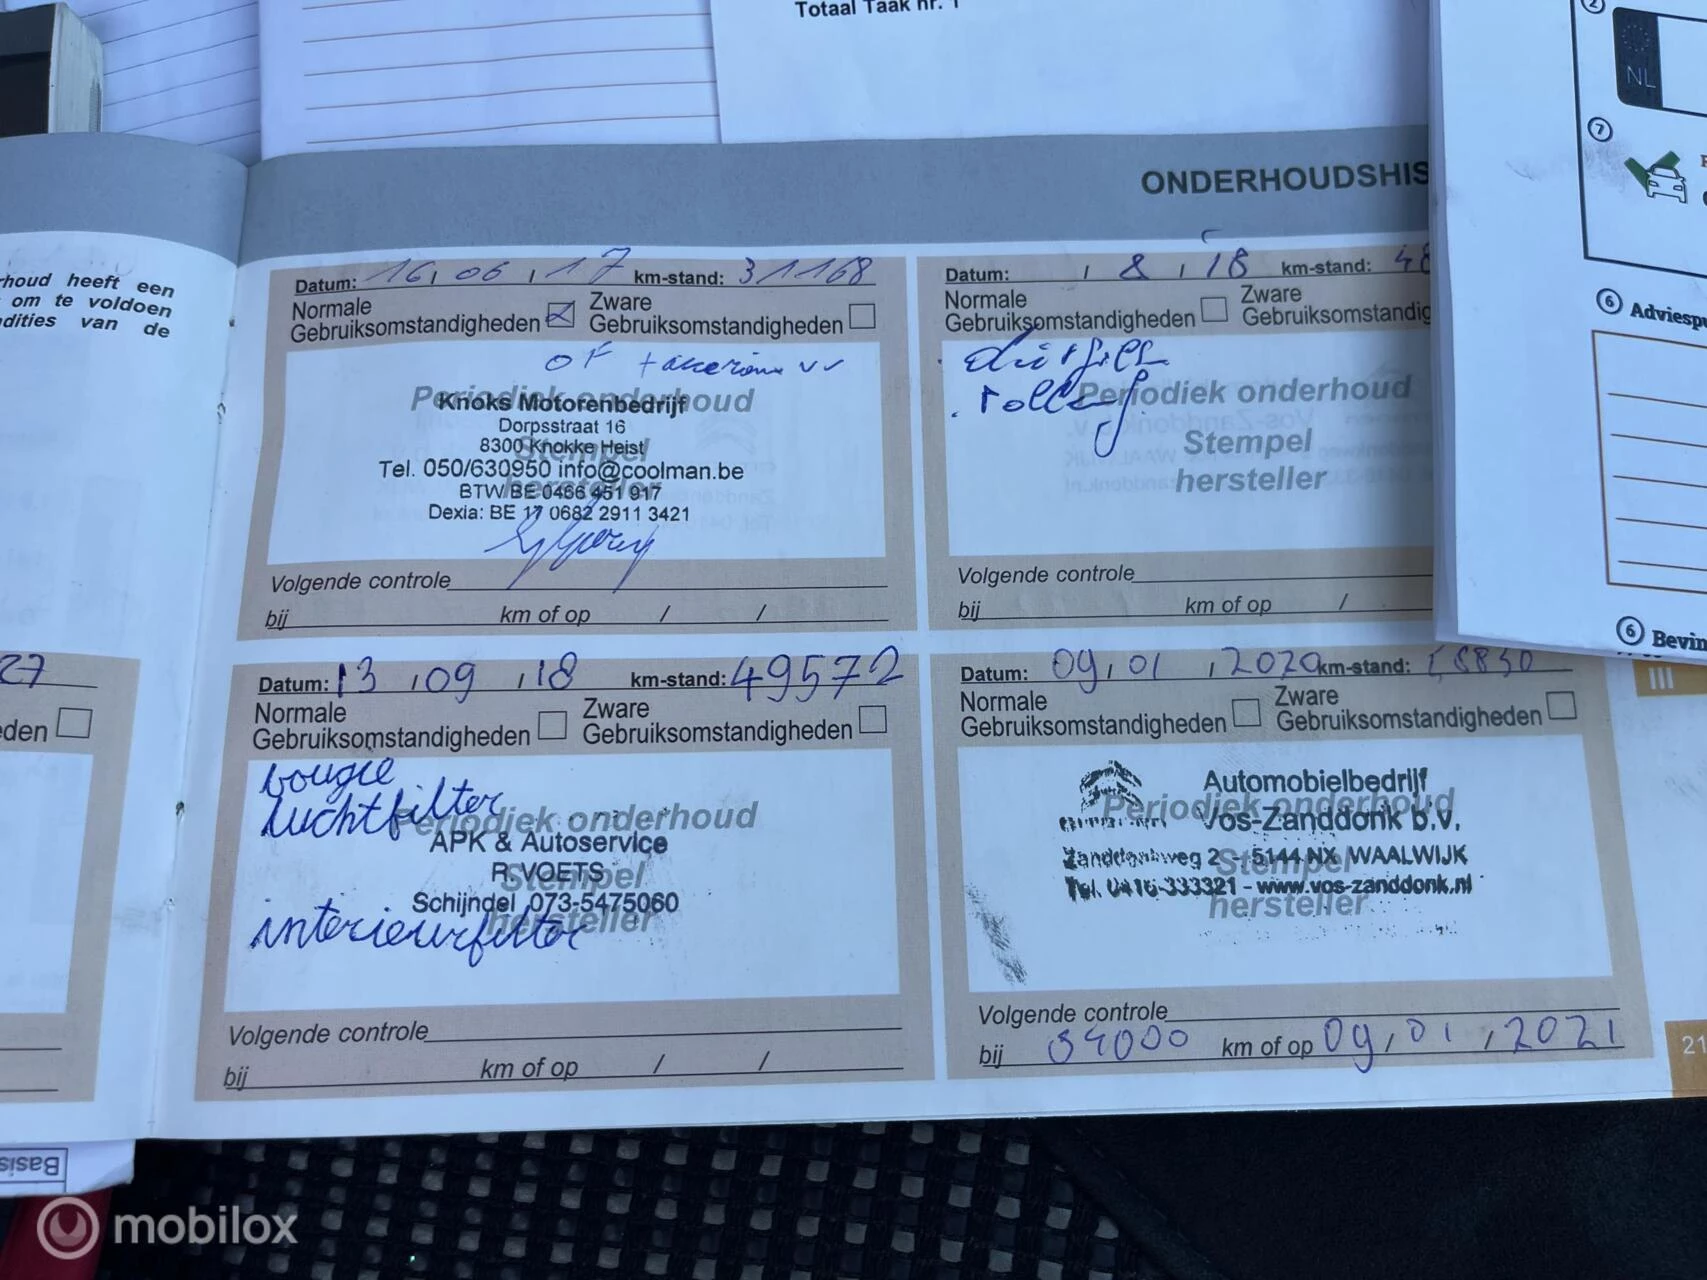 Totaal Taak nr. 1
NL
2
7
ONDERHOUDSHIS
rhoud heeft een
om te voldoen
dities van de
Datum: 16, 06, 17 km-stand: 31168
Normale
Gebruiksomstandigheden
Zware
Gebruiksomstandigheden
Periodiek onderhoud
Stempel
hersteller
Knoks Motorenbedrijf
Dorpsstraat 16
8300 Knokke Heist
Tel. 050/630950 info@coolman.be
BTW BE 0466 451 917
Dexia: BE 17 0682 2911 3421
Volgende controle
bij km of op / /
Datum: / 8 / 18 km-stand: 48
Normale
Gebruiksomstandigheden
Zware
Gebruiksomstandig
Periodiek onderhoud
Stempel
hersteller
Volgende controle
bij km of op /
6 Adviespu
6 Bevin
27
eden
Datum: 13 / 09 / 18 km-stand: 49572
Normale
Gebruiksomstandigheden
Zware
Gebruiksomstandigheden
bougie
luchtfilter
Periodiek onderhoud
APK & Autoservice
R.VOETS
Stempel
Schijndel 073-5475060
hersteller
interieurfilter
Volgende controle
bij km of op / /
Datum: 09 / 01 / 2020 km-stand:
Normale
Gebruiksomstandigheden
Zware
Gebruiksomstandigheden
Automobielbedrijf
Periodiek onderhoud
Vos-Zanddonk b.v.
Zanddonkweg 2 - 5144 NX WAALWIJK
Stempel
Tel. 0416-333321 - www.vos-zanddonk.nl
hersteller
Volgende controle
bij 84000 km of op 09 / 01 / 2021
III
21
Basis
mobilox